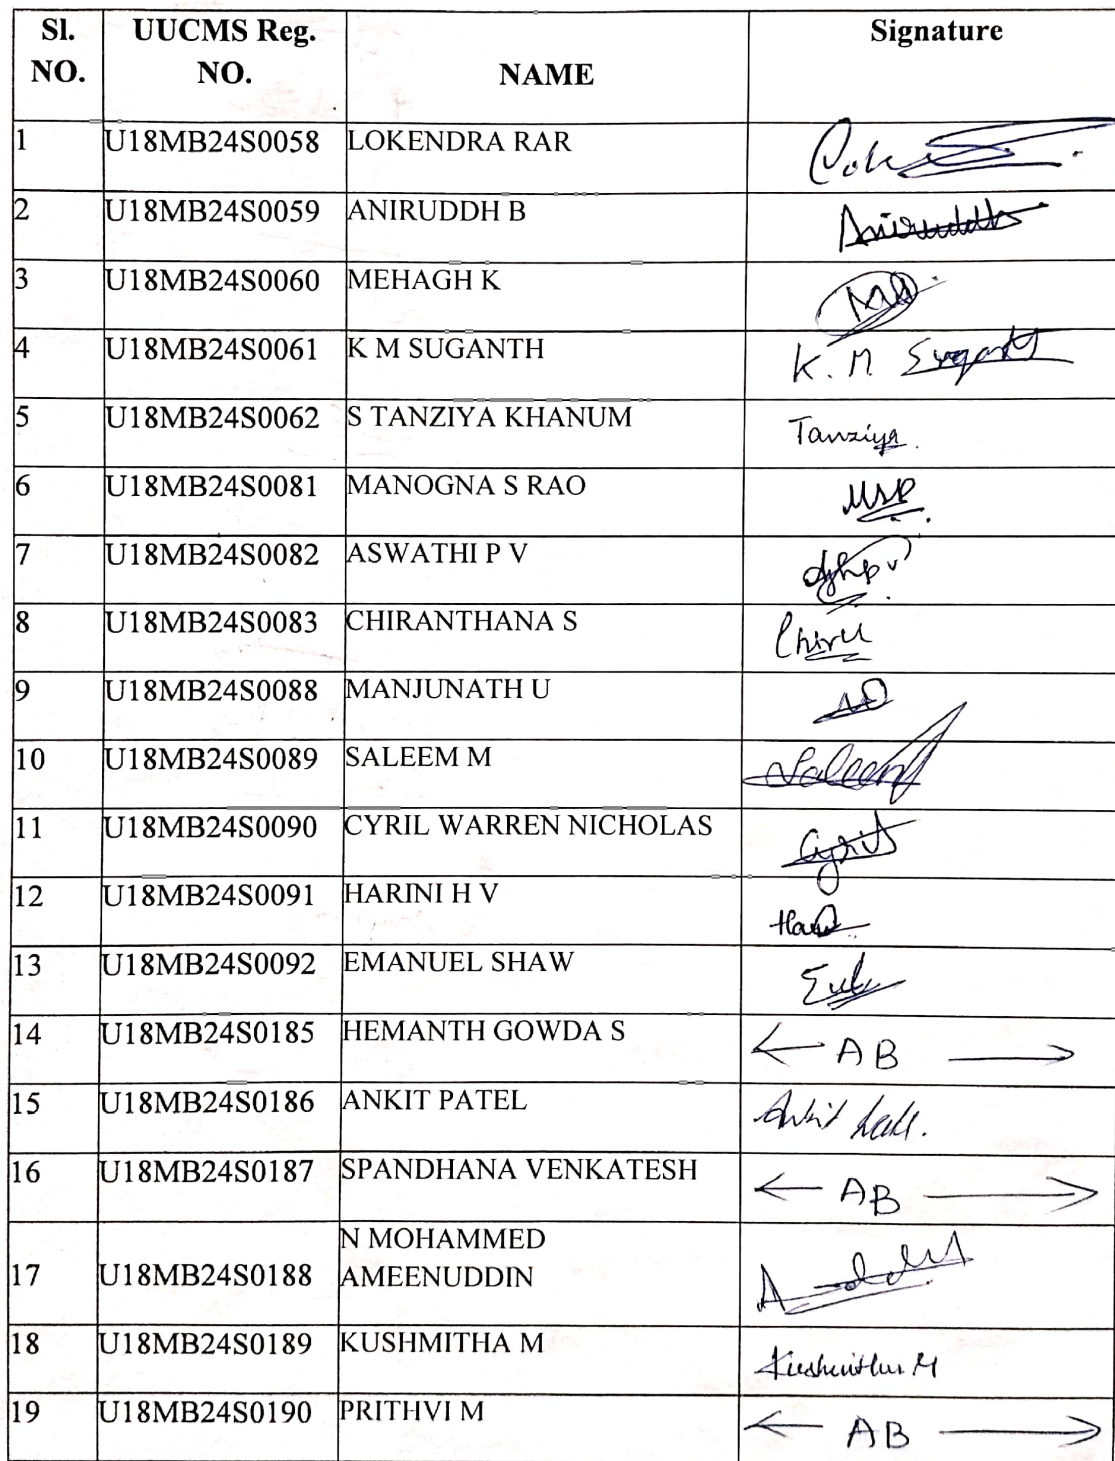 Sl. NO. UUCMS Reg. NO. NAME Signature
1 U18MB24S0058 LOKENDRA RAR
2 U18MB24S0059 ANIRUDDH B Aniruddh
3 U18MB24S0060 MEHAGH K
4 U18MB24S0061 K M SUGANTH K. M Suganth
5 U18MB24S0062 S TANZIYA KHANUM Tanziya.
6 U18MB24S0081 MANOGNA S RAO MSR
7 U18MB24S0082 ASWATHI P V
8 U18MB24S0083 CHIRANTHANA S Chiru
9 U18MB24S0088 MANJUNATH U
10 U18MB24S0089 SALEEM M Saleem
11 U18MB24S0090 CYRIL WARREN NICHOLAS Cyril
12 U18MB24S0091 HARINI H V
13 U18MB24S0092 EMANUEL SHAW
14 U18MB24S0185 HEMANTH GOWDA S ← AB →
15 U18MB24S0186 ANKIT PATEL Ankit
16 U18MB24S0187 SPANDHANA VENKATESH ← AB →
17 U18MB24S0188 N MOHAMMED
AMEENUDDIN
18 U18MB24S0189 KUSHMITHA M Kushmitha M
19 U18MB24S0190 PRITHVI M ← AB →